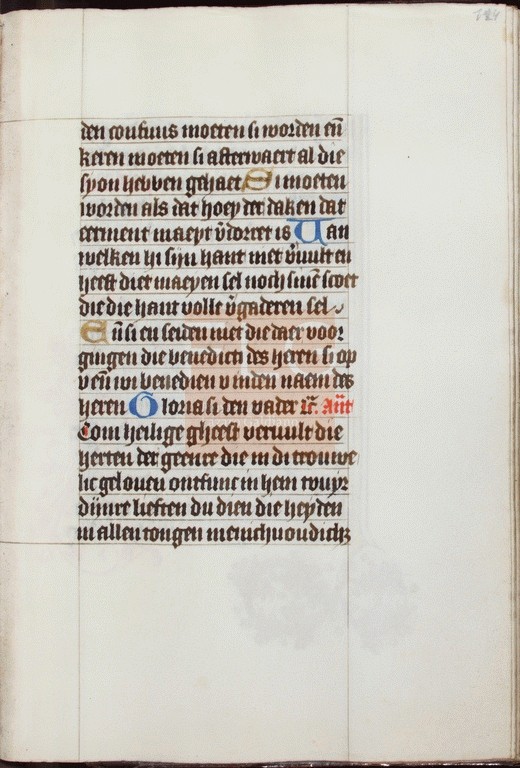 124
den confuus moeten si worden eñ
keren moeten si afterwaert al die
syon hebben gehaet Si moeten
worden als dat hoey der daken dat
eerment maeyt v̄dorret is Uan
welken hi sijn hant niet v̄uult en
heeft diet maeyen sel noch sinē scoet
die die hant volle v̄gaderen sel
Eñ si en seiden niet die daer voor
gingen die benedicti des heren si op
v eñ wi benedien v inden naem des
heren Gloria si den vader  Ant̄
Com heilige gheest veruult die
herten der geenre die in di trouwe
lic gelouen ontfunc in hem tvuyr
dijnre lieften du dien die heyden
in allen tongen menichuoudicħ